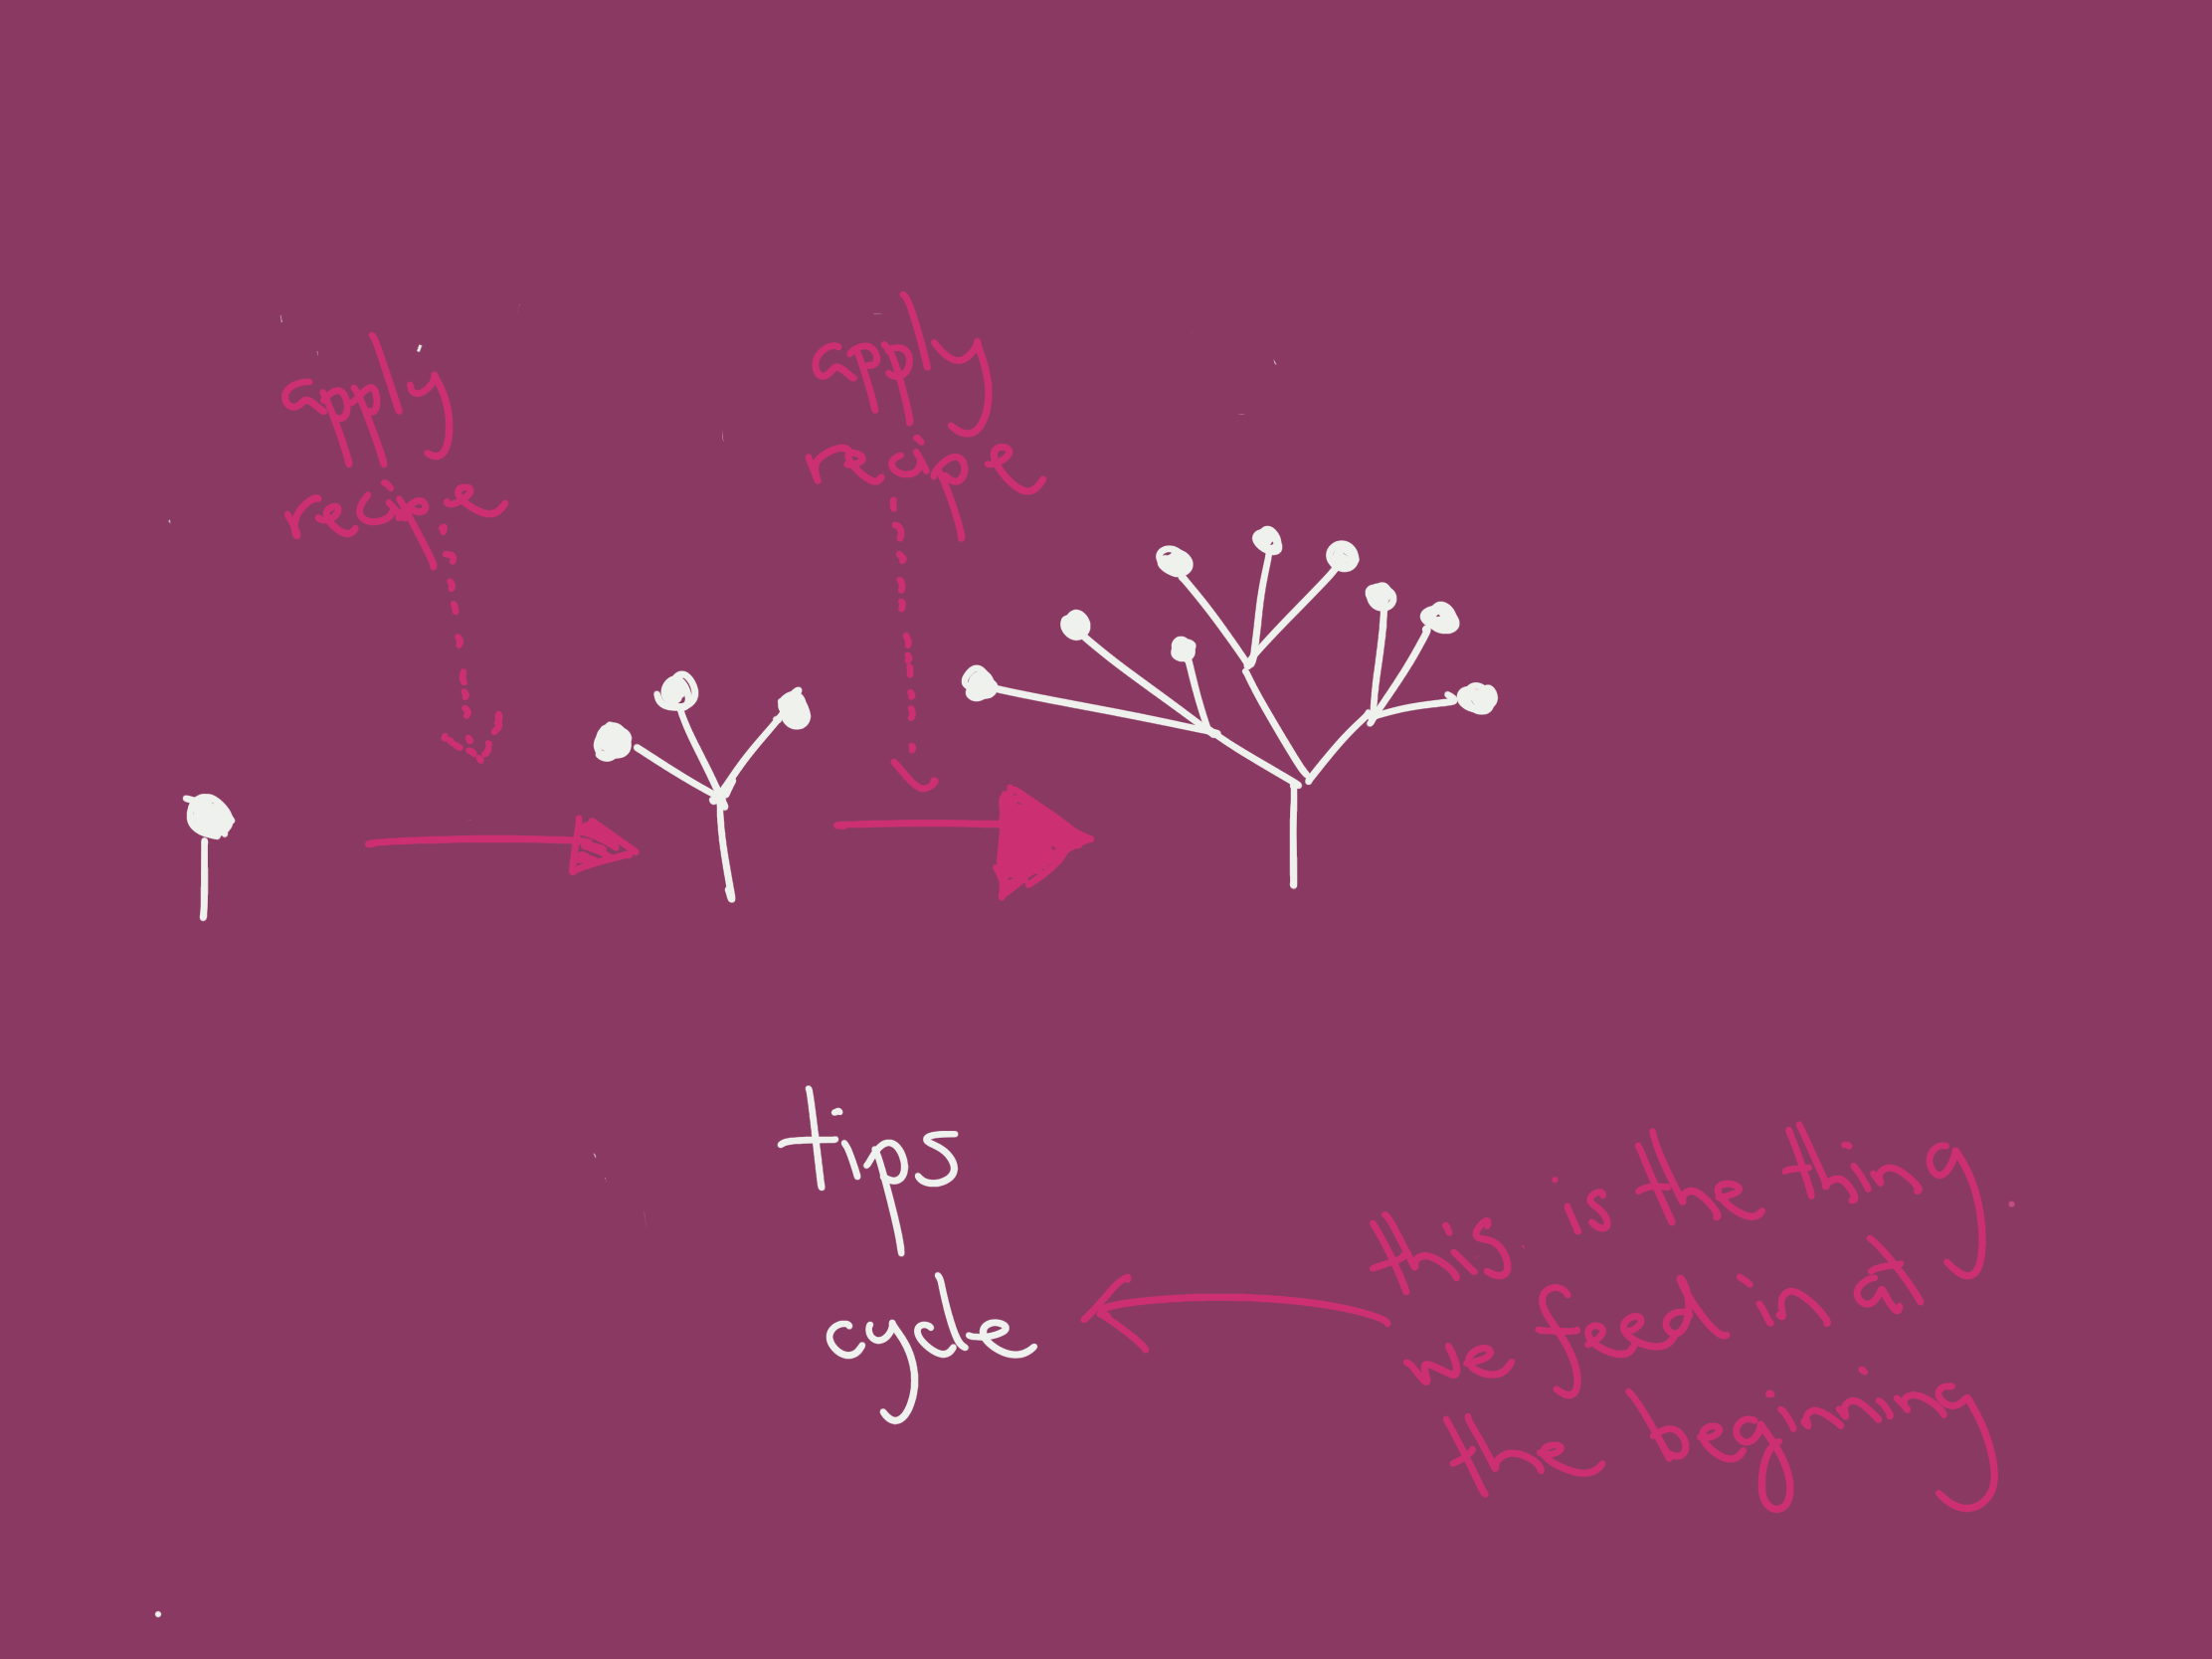 apply
recipe
apply
recipe
tips
cycle
this is the thing
we feed in at
the beginning